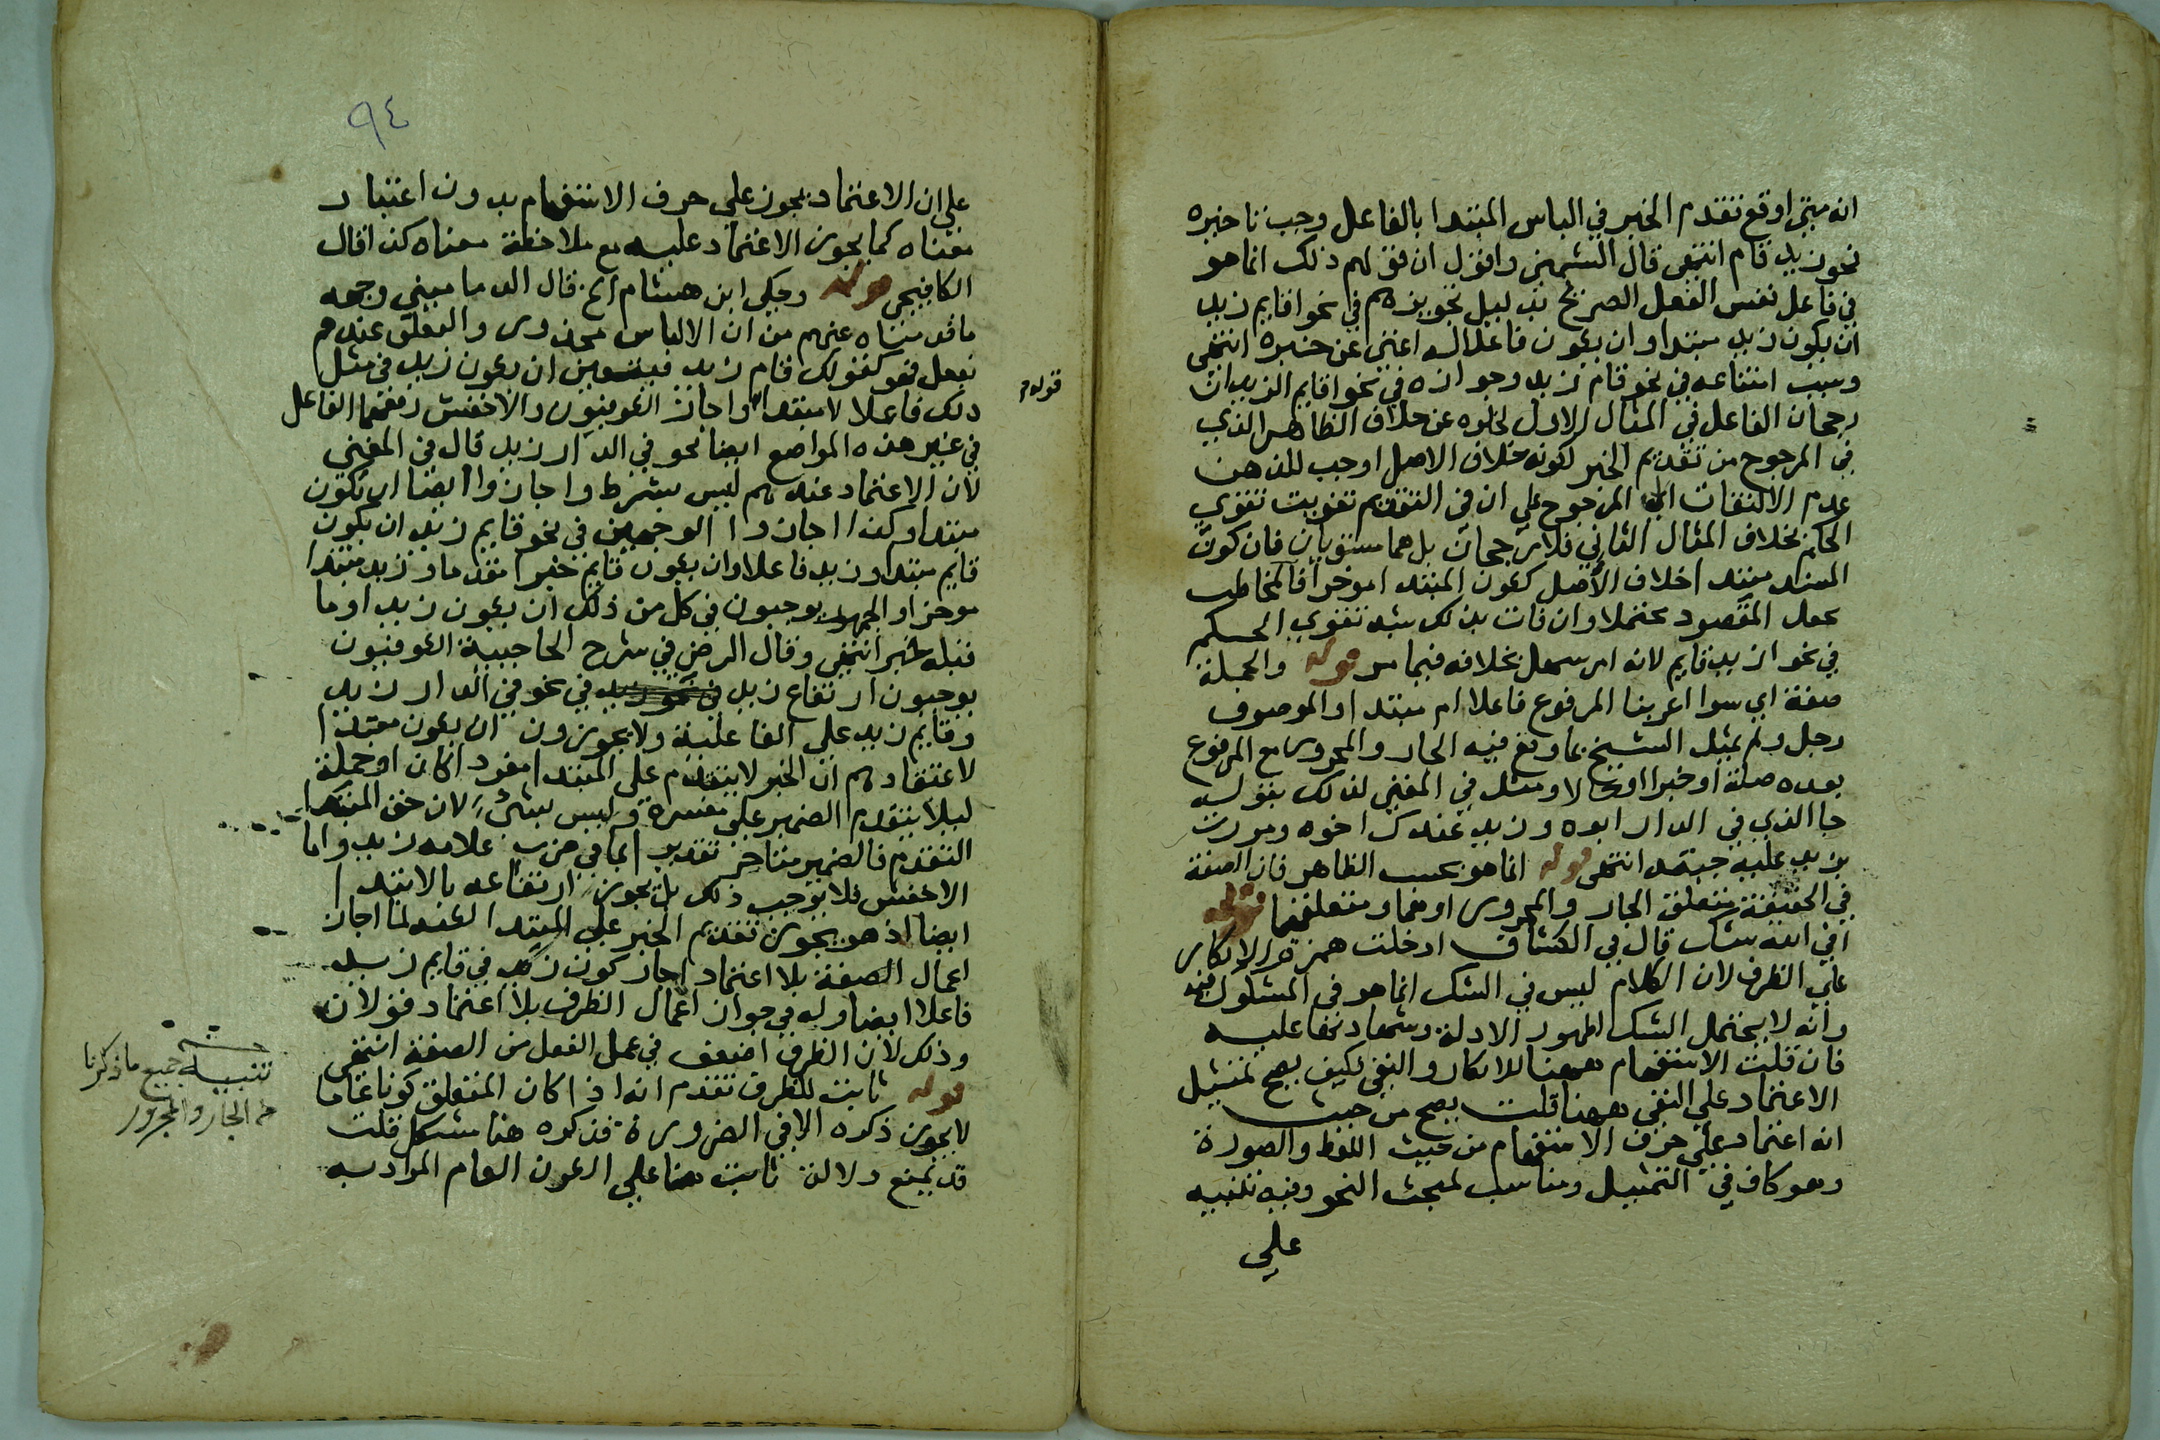 انه متي اوقع تقدم الخبر في الباس المبتدا بالفاعل وجب تاخيره
نحو زيد قام انتهى قال الشمني واقول ان قولهم ذلك انما هو
في فاعل نفس الفعل الصريح بدليل تجويزهم في نحو اقايم زيد
ان يكون زيد مبتدا وان يكون فاعلا اغني عن خبره انتهى
وسبب امتناعه في نحو قام زيد وجوازه في نحو اقايم الزيدان
رجحان الفاعل في المثال الاول لخلوه عن خلاف الظاهر الذي
في المرجوح من تقديم الخبر لكونه خلاف الاصل اوجب للذهن
عدم الالتفات الي المرجوح علي ان في التقديم تفويت تقوي
الحكم بخلاف المثال الثاني فلا رجحان بل هما مستويان فان كون
المسند مبتدا خلاف الاصل ككون المبتدا موخرا فالمخاطب
يجعل المقصود محتملا وان فات بذلك شبه تقوي الحكم
في نحو ازيد قايم لانه امر سهل بخلافه فيما مر قوله والجملة
صفة اي سوا اعربنا المرفوع فاعلا ام مبتدا والموصوف
رجل ولم يمثل الشيخ بما وقع فيه الجار والمجرور مع المرفوع
بعده صلة او خبرا او حالا ومثل في المغني لذلك بقوله
جا الذي في الدار ابوه وزيد عندك اخوه ومررت
بزيد عليه جبة انتهى قوله انما هو بحسب الظاهر فان الصفة
في الحقيقة متعلق الجار والمجرور او هما ومتعلقهما قوله
افي الله شك قال في الكشاف ادخلت همزة الانكار
علي الظرف لان الكلام ليس في الشك انما هو في المشكوك فيه
وانه لا يحتمل الشك لظهور الادلة وشهادتها عليه
فان قلت الاستفهام ههنا للانكار والنفي فكيف يصح تمثيل
الاعتماد علي النفي ههنا قلت يصح من حيث
انه اعتماد علي حرف الاستفهام من حيث اللفظ والصورة
وهو كاف في التمثيل ومناسب لمبحث النحو وفيه تنبيه
علي
٩٤
علي ان الاعتماد يجوز علي حرف الاستفهام بدون اعتبار
معناه كما يجوز الاعتماد عليه مع ملاحظة معناه كذا قال
الكافيجي قوله وحكي ابن هشام الخ قال الدماميني وجهه
ما قدمناه عنهم من ان الالباس محذور والمعلق عندهم
فعل فهو كقولك قام زيد فيتعين ان يكون زيد في مثل
ذلك فاعلا لا مبتدا واجاز الكوفيون والاخفش رفعهما الفاعل
في غير هذه المواضع ايضا نحو في الدار زيد قال في المغني
لان الاعتماد عندهم ليس بشرط واجازوا ايضا ان يكون
مبتدا وكذا اجازوا الوجهين في نحو قايم زيد ان يكون
قايم مبتدا وزيد فاعلا وان يكون قايم خبرا مقدما وزيد مبتدا
موخرا والجمهور يوجبون في كل من ذلك ان يكون زيد او ما
قبله خبر انتهى وقال الرضي في شرح الحاجبية الكوفيون
يوجبون ارتفاع زيد في نحو في الدار زيد
وقايم زيد علي الفاعلية ولا يجوزون ان يكون مبتدا
لاعتقادهم ان الخبر لا يتقدم علي المبتدا مفردا كان او جملة
ليلا يتقدم الضمير علي مفسره وليس بشي لان حق المبتدا
التقدم فالضمير متاخر تقديرا كما في ضرب غلامه زيد واما
الاخفش فلا يوجب ذلك بل يجوز ارتفاعه بالابتدا
ايضا اذ هو يجوز تقديم الخبر علي المبتدا لكنه لما اجاز
اعمال الصفة بلا اعتماد اجاز كون زيد في قايم زيد
فاعلا ايضا وله في جواز اعمال الظرف بلا اعتماد قولان
وذلك لان الظرف اضعف في عمل الفعل من الصفة انتهى
قوله ثابت للظرف تقدم انه اذا كان المتعلق كونا عاما
لا يجوز ذكره الا في الضرورة فذكره هنا مشكل قلت
قد يمنع دلالة ثابت هنا علي الكون العام المراد به
قوله
تنبيه جميع ما ذكرنا
الجار والمجرور